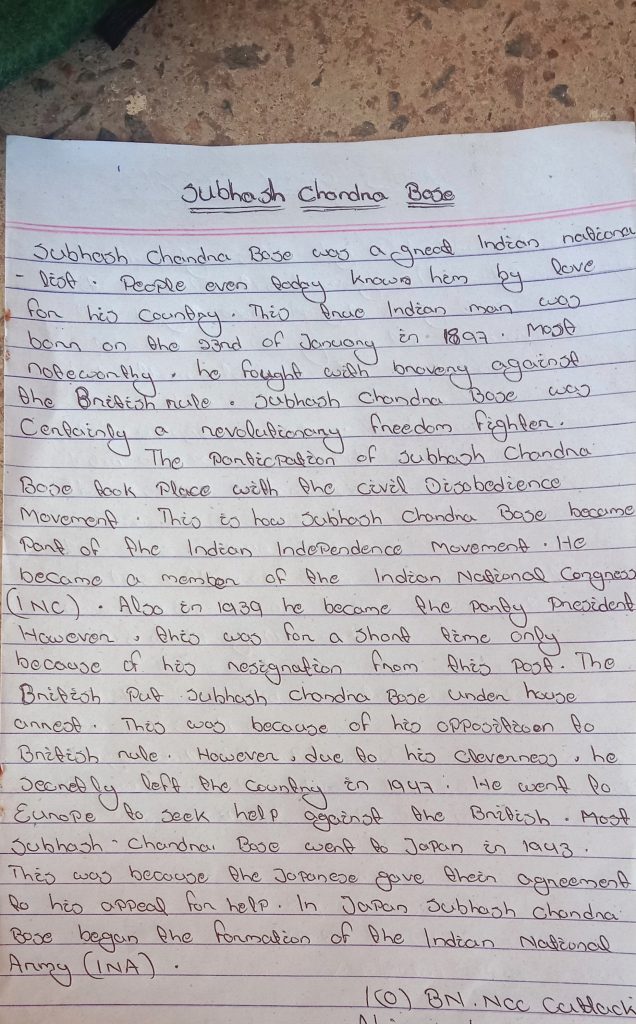 Subhash Chandra Bose
Subhash Chandra Bose was a great Indian nationa
- list. People even today known him by love
for his country. This true Indian man was
born on the 23rd of January in 1897. Most
noteworthy, he fought with bravery against
the British rule. Subhash Chandra Bose was
Certainly a revolutionary freedom fighter.
The Particpation of Subhash Chandra
Bose took Place with the civil Disobedience
Movement. This is how Subhash Chandra Bose became
Part of the Indian Independence Movement. He
became a member of the Indian National Congress
(INC). Also in 1939 he became the party President
However, this was for a short time only
because of his resignation from this post. The
British Put Subhash Chandra Bose under house
arrest. This was because of his opposition to
British rule. However, due to his cleverness, he
secretly left the country in 1947. He went to
Europe to seek help against the British. Most
Subhash - Chandra Bose went to Japan in 1943.
This was because the Japanese gave their agreement
to his appeal for help. In Japan Subhash Chandra
Bose began the formation of the Indian National
Army (INA).
1(O) BN. NCC Cuttack